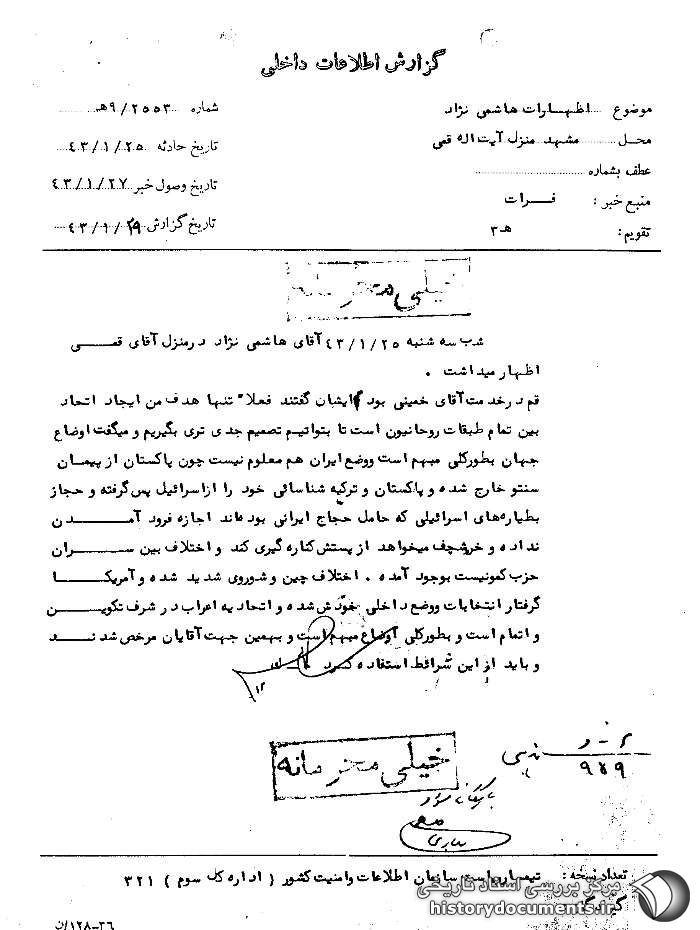 گزارش اطلاعات داخلی
موضوع ..... اظهارات هاشمی نژاد
شماره ۹/۲۵۵۳هـ
محل ..... مشهد منزل آیت اله قمی
تاریخ حادثه ۴۳/۱/۲۵
عطف بشماره
تاریخ وصول خبر ۴۳/۱/۲۷
منبع خبر : فرات
تاریخ گزارش ۴۳/۱/۲۹
تقویم: هـ۳
خیلی محرمانه
شب سه شنبه ۴۳/۱/۲۵ آقای هاشمی نژاد درمنزل آقای قمی
اظهار میداشت .
قم درخدمت آقای خمینی بودم ایشان گفتند فعلا" تنها هدف من ایجاد اتحاد
بین تمام طبقات روحانیون است تا بتوانیم تصمیم جدی تری بگیریم و میگفت اوضاع
جهان بطورکلی مبهم است ووضع ایران هم معلوم نیست چون پاکستان از پیمان
سنتو خارج شده و پاکستان و ترکیه شناسائی خود را ازاسرائیل پس گرفته و حجاز
بطیاره‌های اسرائیلی که حامل حجاج ایرانی بوده‌اند اجازه فرود آمدن
نداده و خرشچف میخواهد از پستش کناره گیری کند و اختلاف بین سران
حزب کمونیست بوجود آمده . اختلاف چین و شوروی شدید شده و آمریکا
گرفتار انتخابات ووضع داخلی خودش شده و اتحادیه اعراب در شرف تکوین
و اتمام است و بطورکلی اوضاع مبهم است و بهمین جهت آقایان مرخص شدند
و باید از این شرائط استفاده کرد
۱۲
خیلی محرمانه
۹۵۹
تعداد نسخه:
تیمسار ریاست سازمان اطلاعات وامنیت کشور ( اداره کل سوم ) ۳۲۱
مرکز بررسی اسناد تاریخی
historydocuments.ir
۳۶-۱۲۸/ن